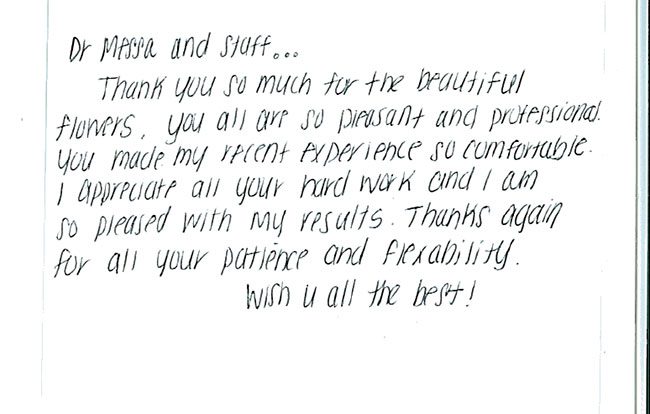 Dr Messa and staff...
Thank you so much for the beautiful
flowers, you all are so pleasant and professional.
You made my recent experience so comfortable.
I appreciate all your hard work and I am
so pleased with my results. Thanks again
for all your patience and flexability.
Wish u all the best!